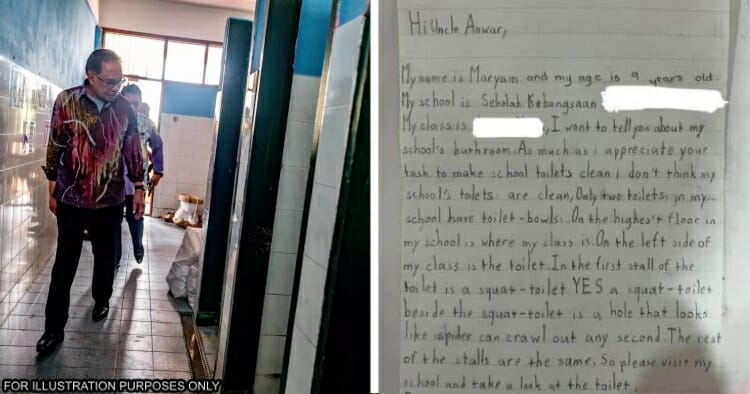 Hi Uncle Anwar,
My name is Maryam and my age is 9 years old.
My school is Sekolah Kebangsaan
My class is , I want to tell you about my
school's bathroom. As much as i appreciate your
task to make school toilets clean i don't think my
school's toilets are clean, Only two toilets in my
school have toilet-bowls. On the highes't floor in
my school is where my class is. On the left side of
my class is the toilet. In the first stall of the
toilet is a squat-toilet YES a squat-toilet
beside the squat-toilet is a hole that looks
like spider can crawl out any second. The rest
of the stalls are the same. So please visit my
school and take a look at the toilet.
FOR ILLUSTRATION PURPOSES ONLY